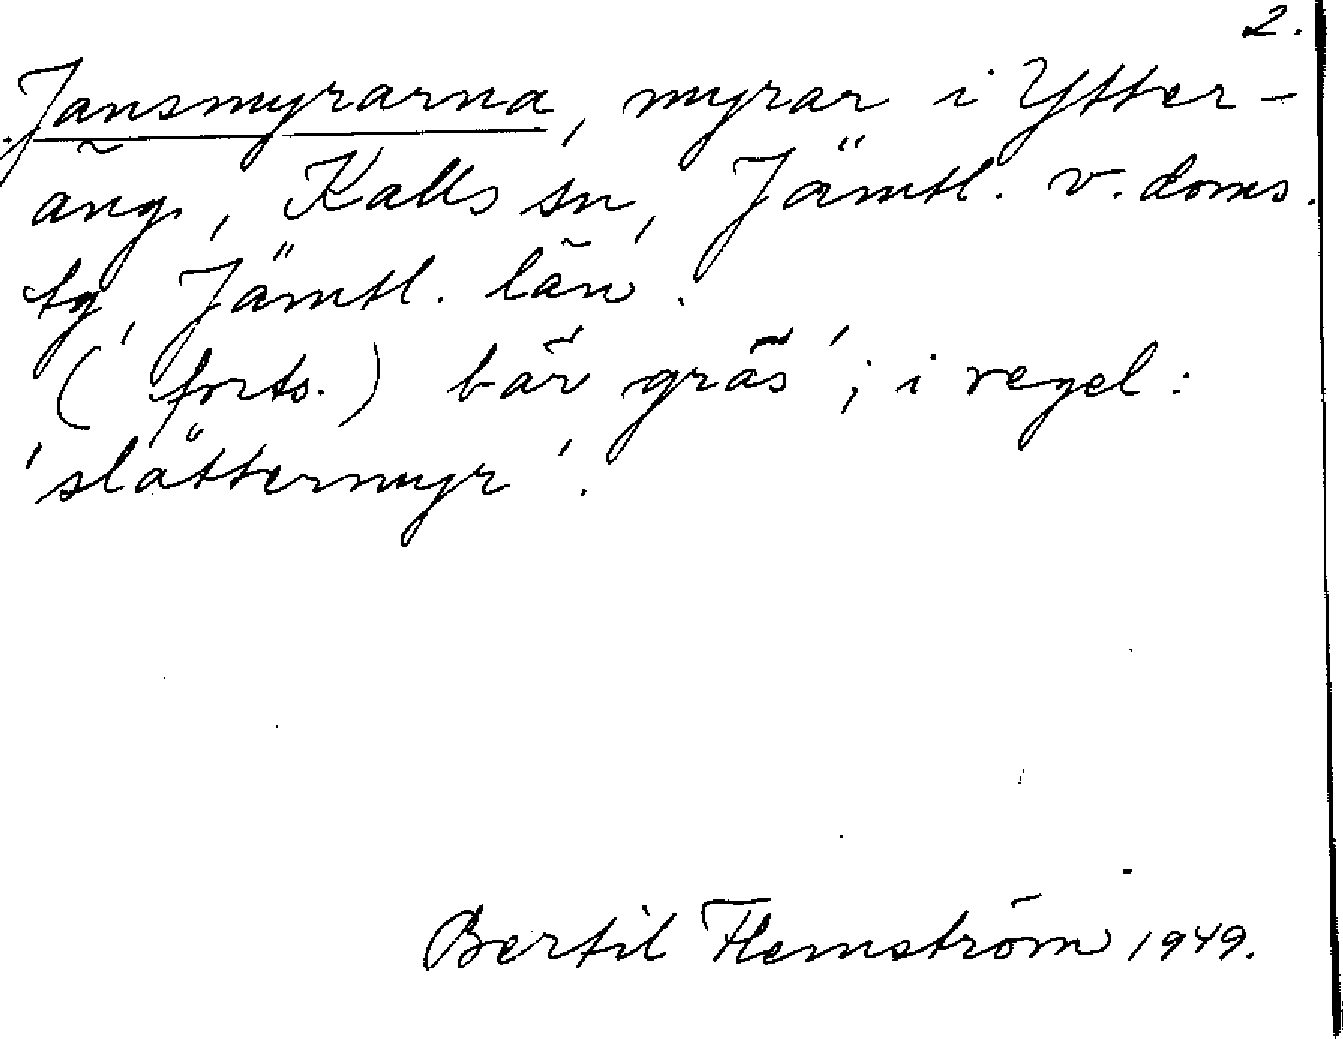 2.
Jansmyrarna, myrar i Ytter-
äng, Kalls sn, Jämtl. v. doms.
tg, Jämtl. län.
(forts.) bär gräs'; i regel:
'slåttermyr'.
Bertil Flemström 1949.